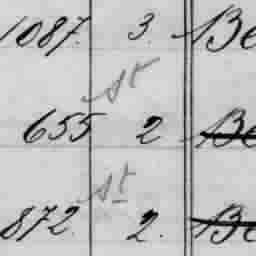 1087. 3. Be
st
655 2 Be
st
872 2. Be